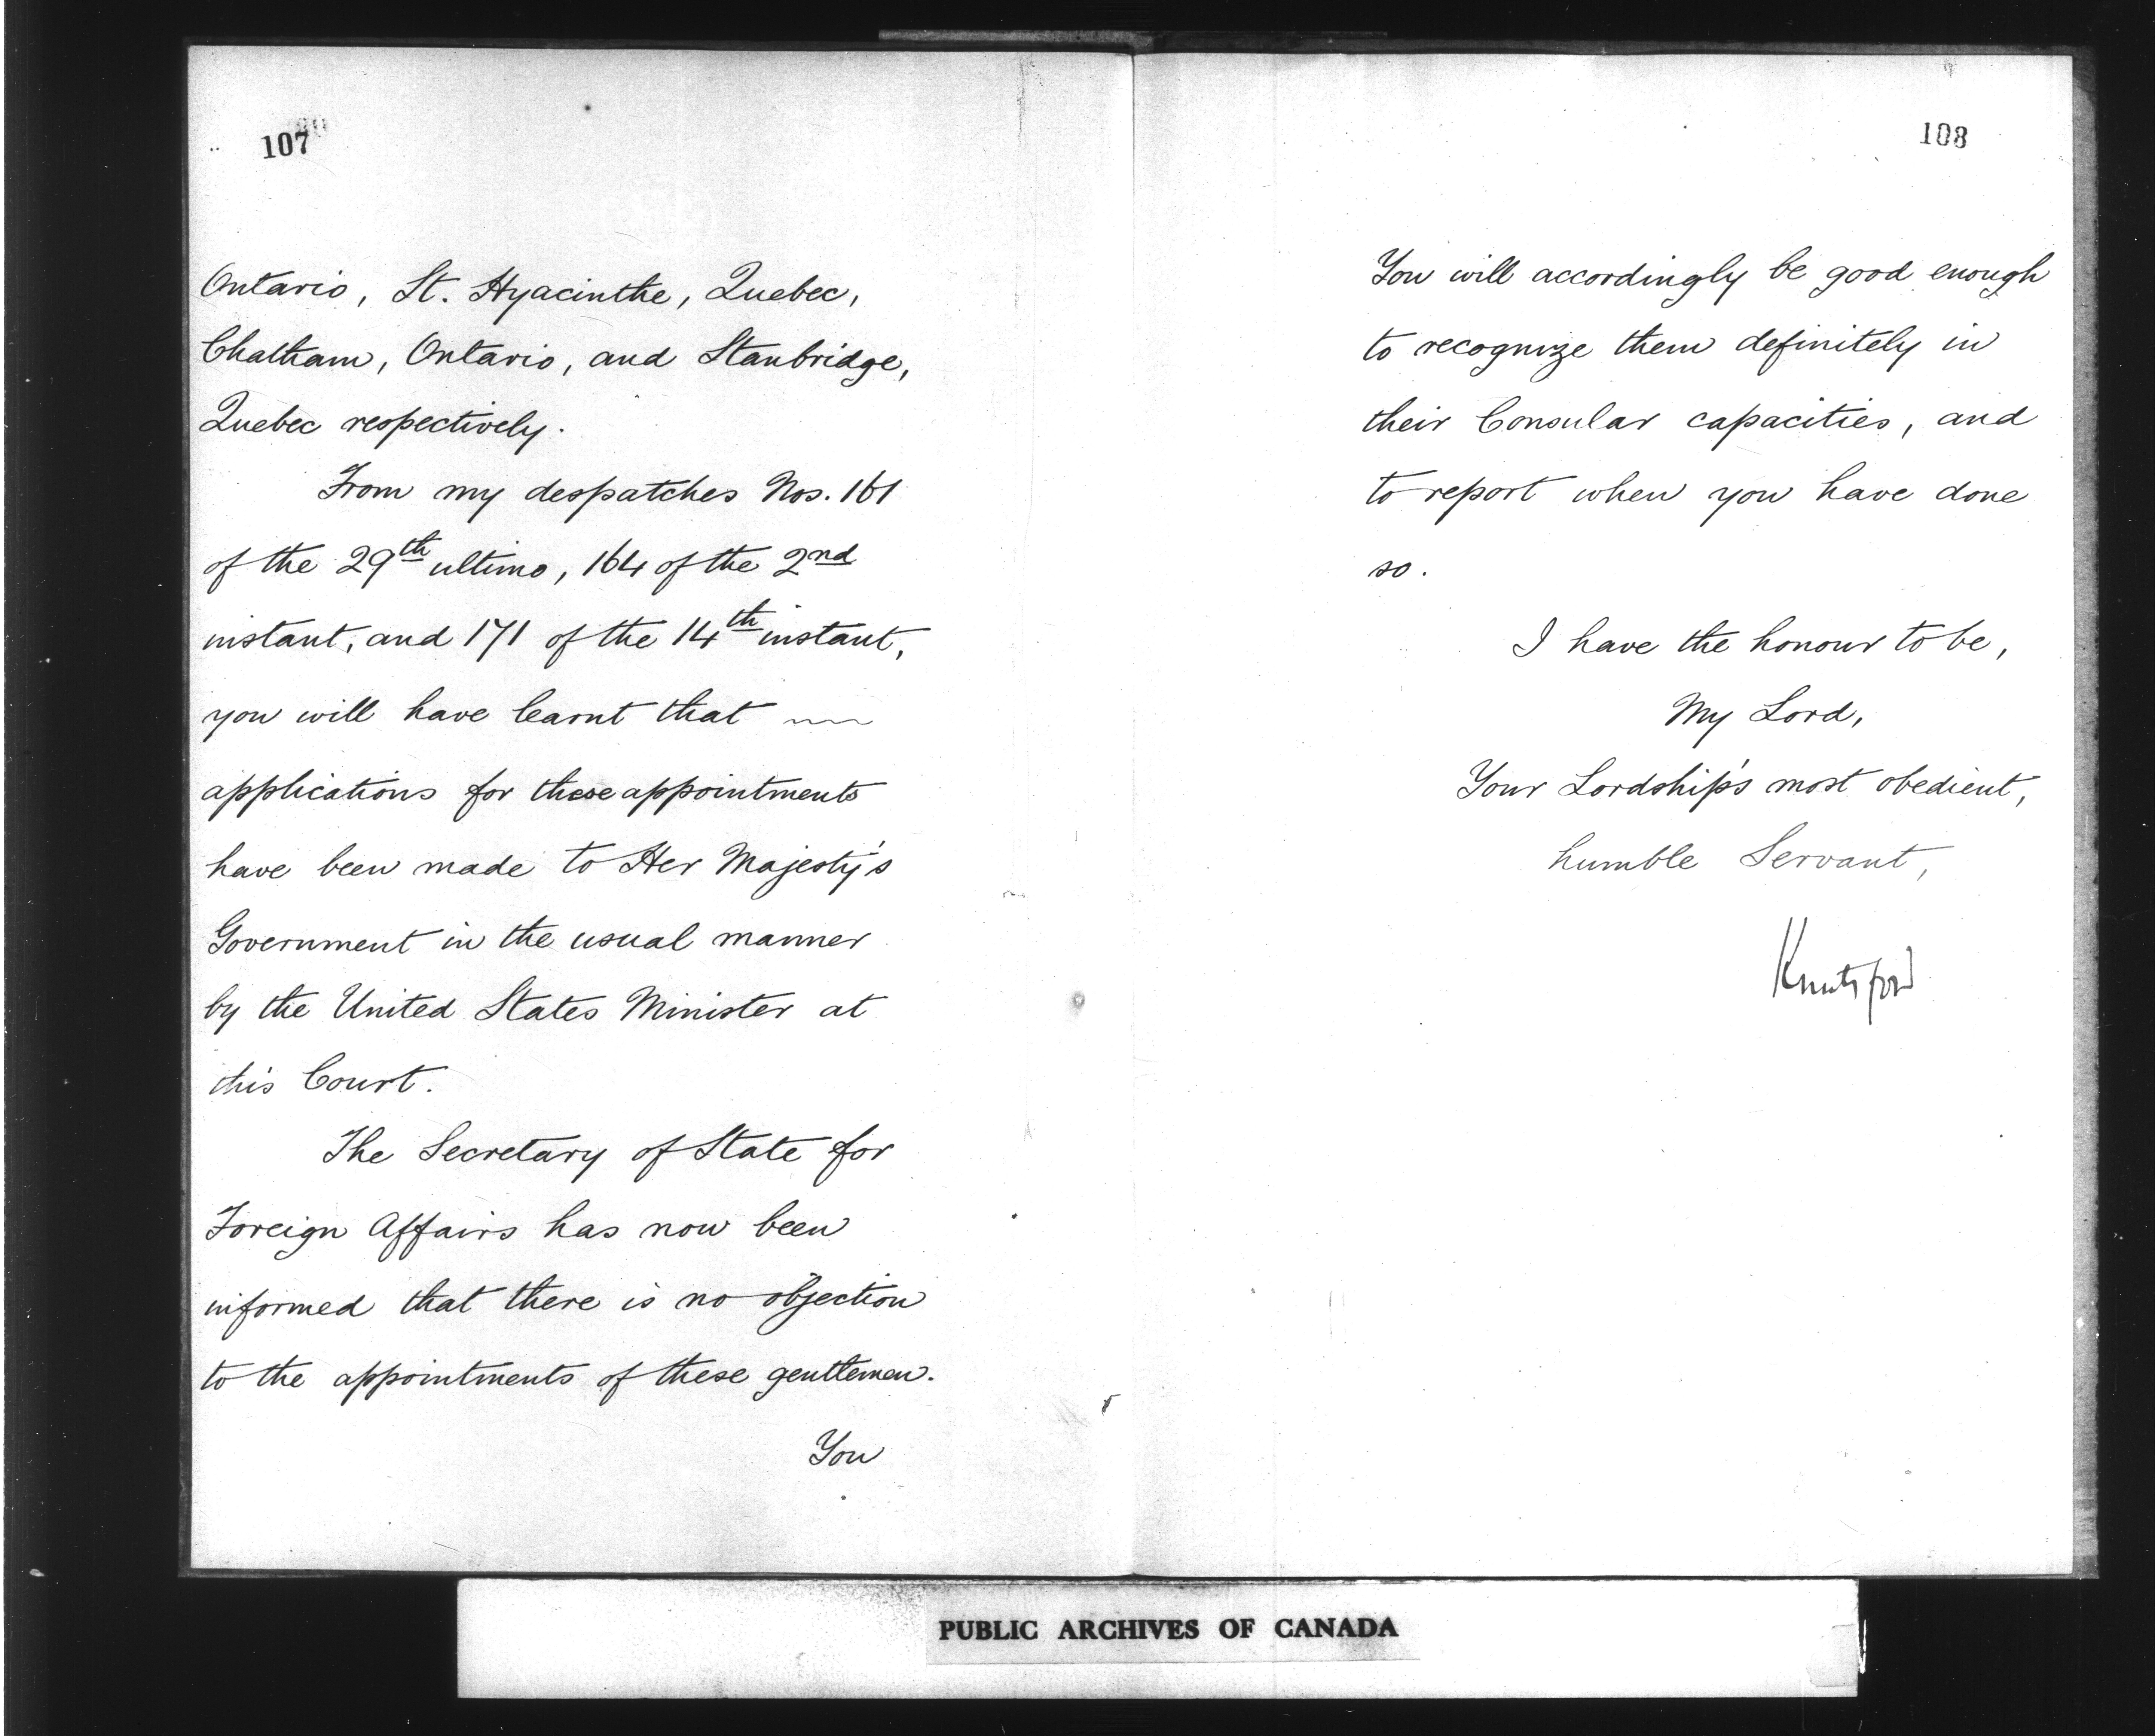 107
Ontario, St. Hyacinthe, Quebec,
Chatham, Ontario, and Stanbridge,
Quebec respectively.
From my despatches Nos. 161
of the 29th ultimo, 164 of the 2nd
instant, and 171 of the 14th instant,
you will have learnt that
applications for these appointments
have been made to Her Majesty's
Government in the usual manner
by the United States Minister at
this Court.
The Secretary of State for
Foreign Affairs has now been
informed that there is no objection
to the appointments of these gentlemen.
You
108
You will accordingly be good enough
to recognize them definitely in
their Consular capacities, and
to report when you have done
so.
I have the honour to be,
My Lord,
Your Lordship's most obedient,
humble Servant,
Knutsford
PUBLIC ARCHIVES OF CANADA